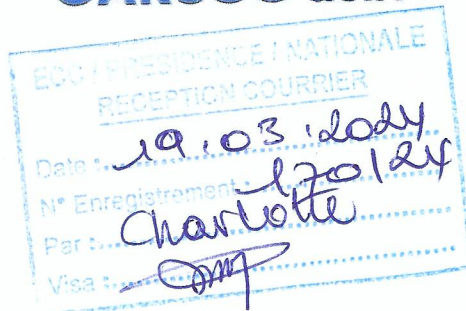 ECC / PRESIDENCE / NATIONALE
RECEPTION COURRIER
Date : 19.03.2024
N° Enregistrement : 170/24
Par : Charlotte
Visa :